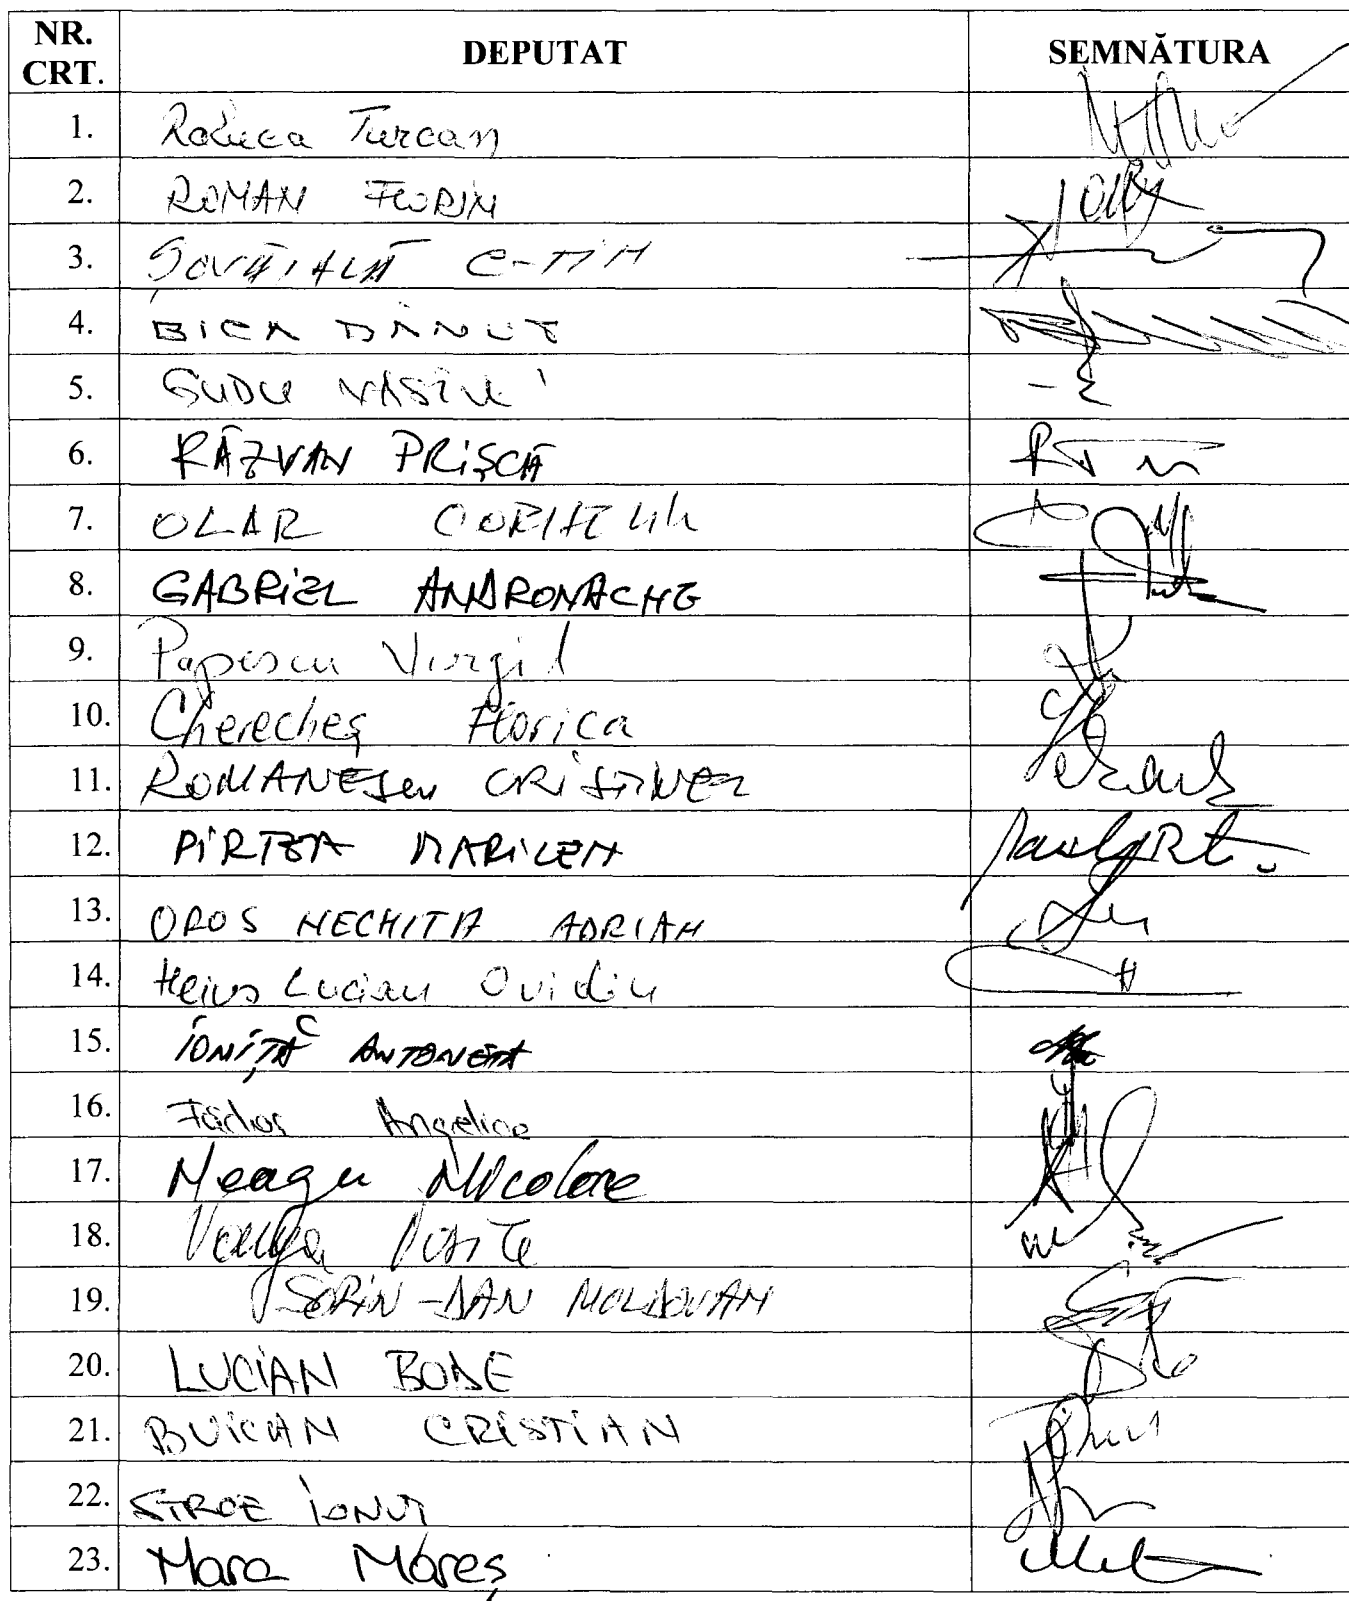 NR. CRT. DEPUTAT SEMNĂTURA
1. Raluca Turcan
2. ROMAN FLORIN
3. ȘOVĂIALĂ C-TIN
4. BICA DĂNUȚ
5. GUDU VASILE
6. RĂZVAN PRIȘCĂ
7. OLAR CORNELIU
8. GABRIEL ANDRONACHE
9. Popescu Virgil
10. Cherecheș Florica
11. ROMANESCU CRISTINEL
12. PIRTEA MARILEN
13. OROS NECHITA ADRIAN
14. Heius Lucian Ovidiu
15. IONIȚĂ ANTONETA
16. Fădor Angelica
17. Neagu Nicolae
18. Varga Vasile
19. SORIN-DAN MOLDOVAN
20. LUCIAN BODE
21. BUICAN CRISTIAN
22. STROE IONUȚ
23. Mara Mareș